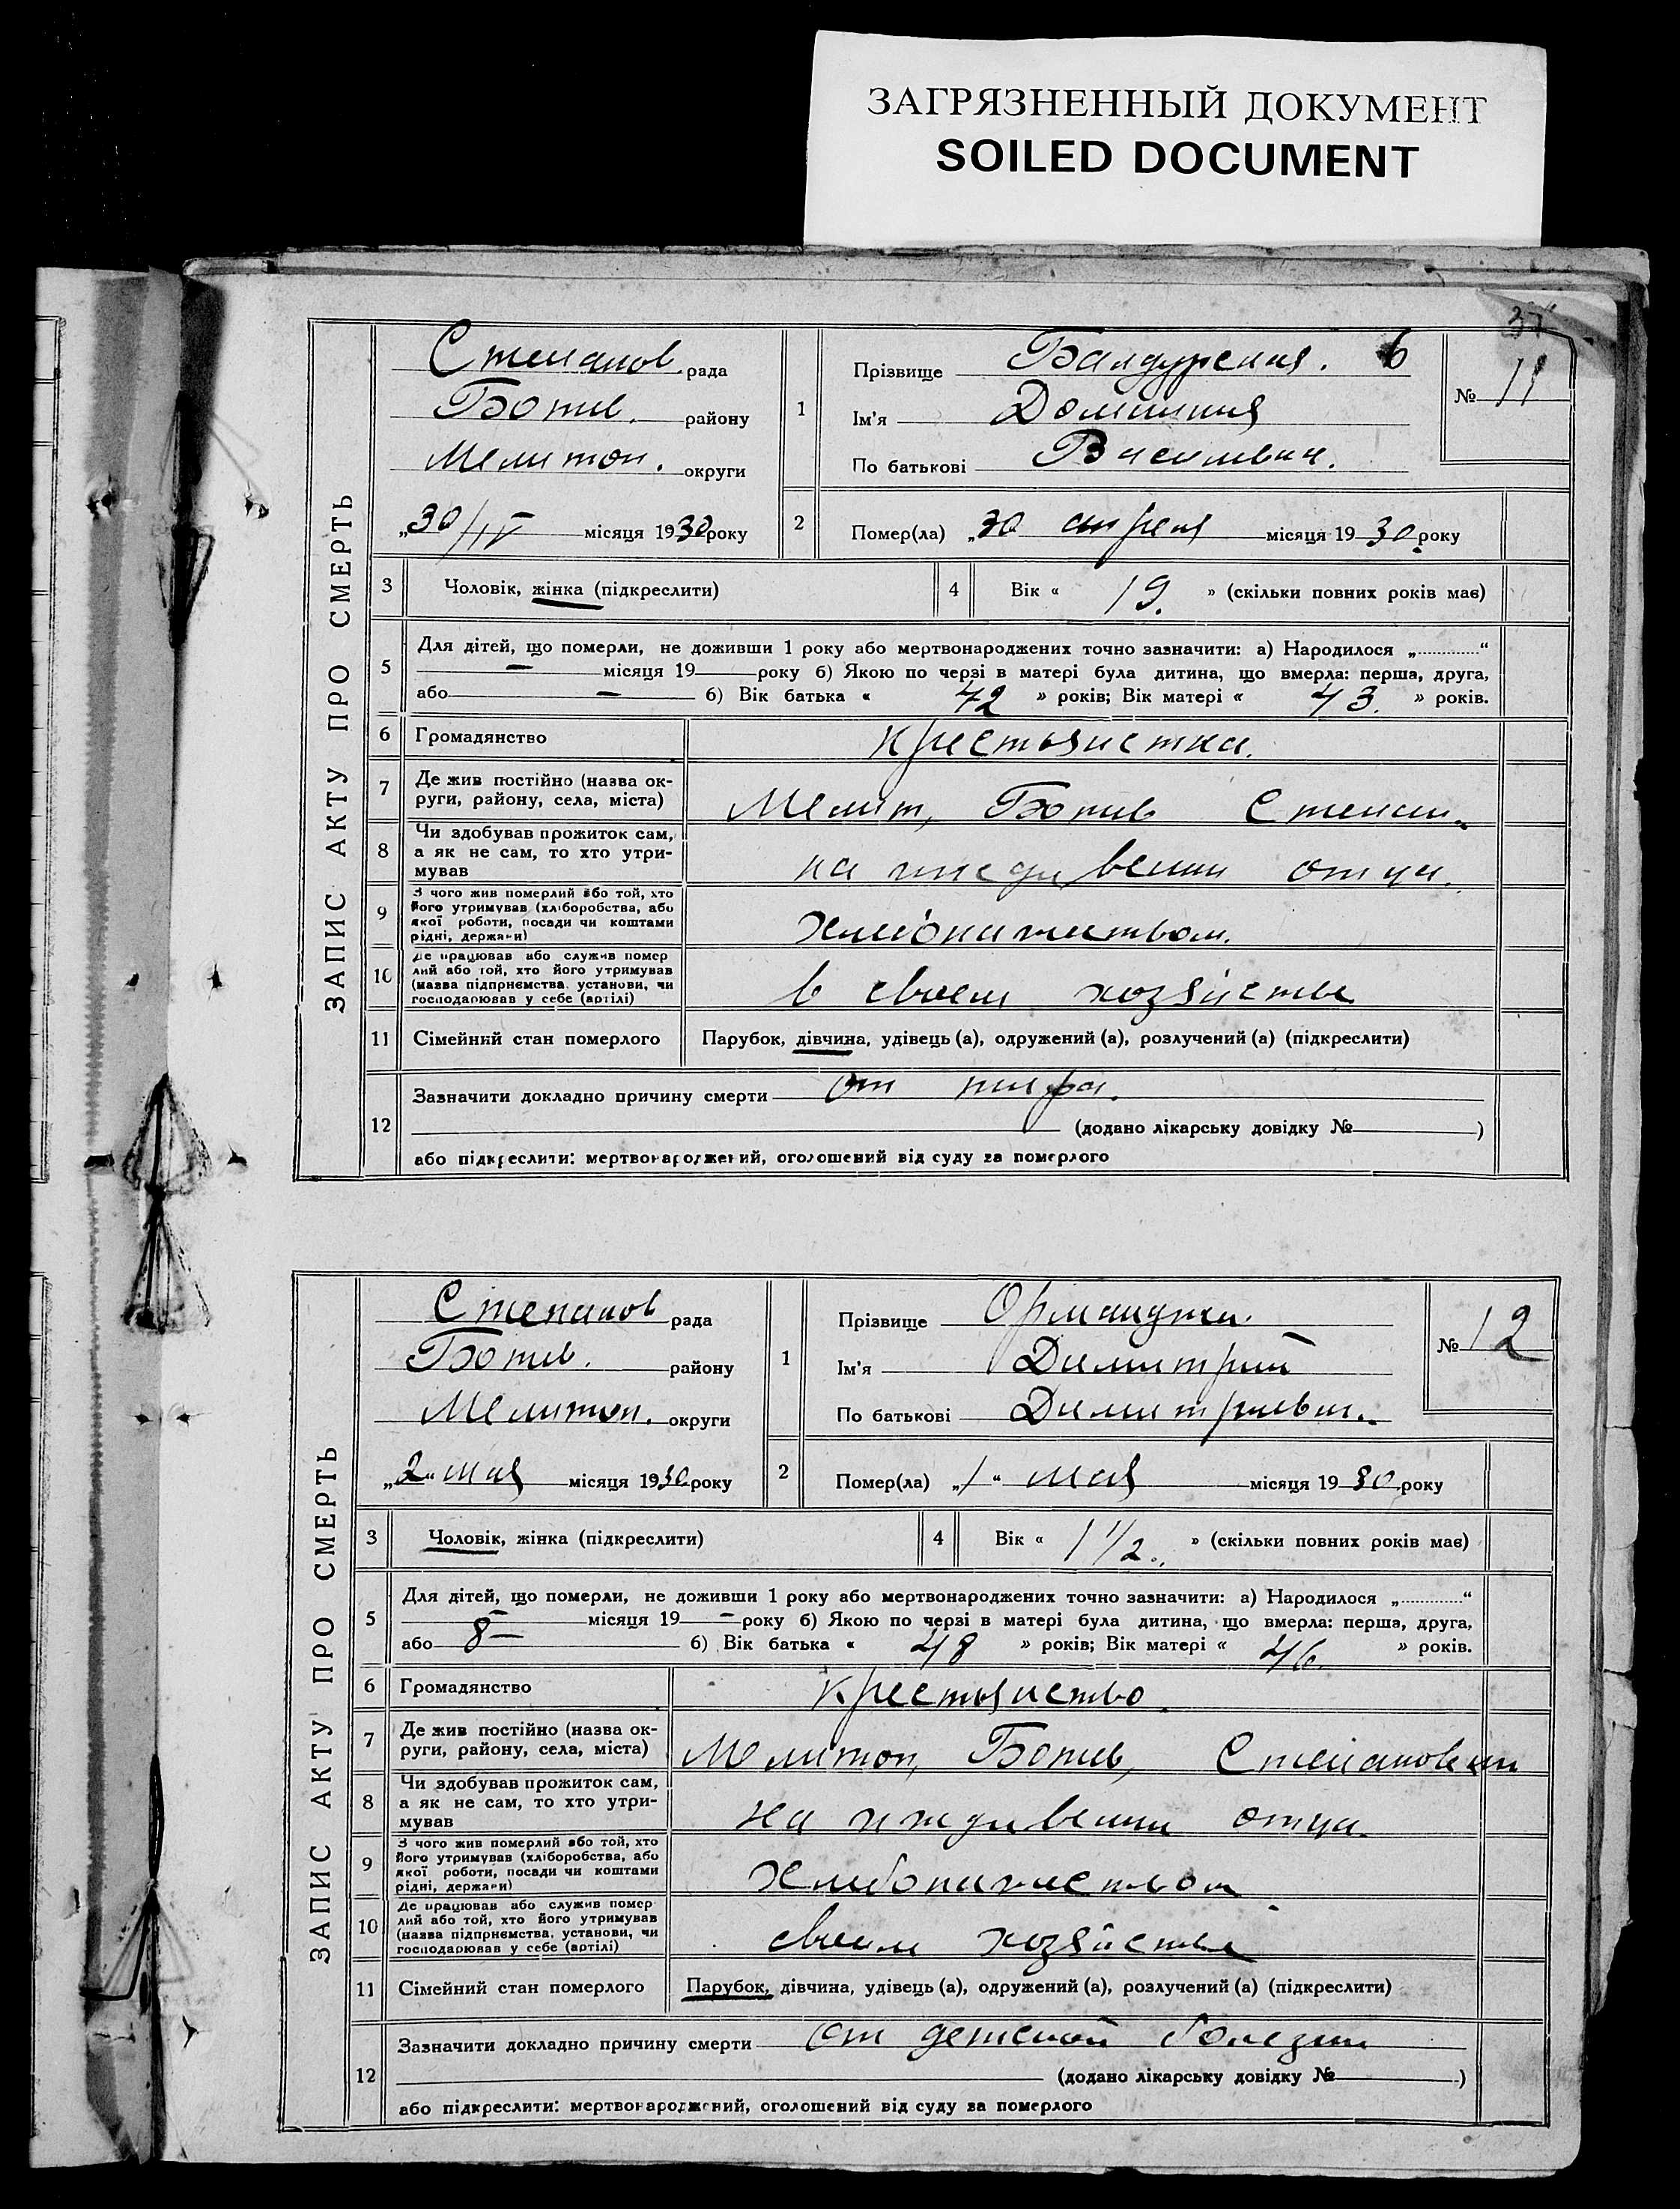 ЗАГРЯЗНЕННЫЙ ДОКУМЕНТ
SOILED DOCUMENT
37
ЗАПИС АКТУ ПРО СМЕРТЬ
Степанов. рада
Ботиев. району
Мелитоп. округи
„30/IV місяця 1930 року
1
Прізвище Балдурская. б
Ім'я Домникия
По батькові Василевич.
№ 11
2
Помер(ла) „30 апреля місяця 1930 року
3 Чоловік, жінка (підкреслити)
4 Вік « 19. » (скільки повних років має)
5 Для дітей, що померли, не доживши 1 року або мертвонароджених точно зазначити: а) Народилося „............“
— місяця 19 року б) Якою по черзі в матері була дитина, що вмерла: перша, друга,
або — б) Вік батька « 42 » років; Вік матері « 43. » років.
6 Громадянство крестьянстка.
7 Де жив постійно (назва ок-
руги, району, села, міста) Мелит, Ботив Степан.
8 Чи здобував прожиток сам,
а як не сам, то хто утри-
мував на иждивении отца.
9 З чого жив померлий або той, хто
його утримував (хліборобства, або
якої роботи, посади чи коштами
рідні, держави) Хлебопашеством.
10 Де працював або служив помер
лий або той, хто його утримував
(назва підприємства, установи, чи
господарював у себе (артілі) в своем хозяйстве
11 Сімейний стан померлого Парубок, дівчина, удівець (а), одружений (а), розлучений (а) (підкреслити)
12 Зазначити докладно причину смерти от тифа.
(додано лікарську довідку № )
або підкреслити: мертвонароджений, оголошений від суду за померлого
ЗАПИС АКТУ ПРО СМЕРТЬ
Степанов рада
Ботиев. району
Мелитоп. округи
„2“ мая місяця 1930 року
1
Прізвище Орманджи
Ім'я Димитрий
По батькові Димитриевич.
№ 12
2
Помер(ла) „1“ мая місяця 1930 року
3 Чоловік, жінка (підкреслити)
4 Вік « 1 1/2 » (скільки повних років має)
5 Для дітей, що померли, не доживши 1 року або мертвонароджених точно зазначити: а) Народилося „............“
— місяця 19 — року б) Якою по черзі в матері була дитина, що вмерла: перша, друга,
або 8 — б) Вік батька « 48 » років; Вік матері « 46. » років.
6 Громадянство крестьянство
7 Де жив постійно (назва ок-
руги, району, села, міста) Мелитоп, Ботиев, Степановки
8 Чи здобував прожиток сам,
а як не сам, то хто утри-
мував на иждивении отца
9 З чого жив померлий або той, хто
його утримував (хліборобства, або
якої роботи, посади чи коштами
рідні, держави) Хлебопашеством
10 Де працював або служив помер
лий або той, хто його утримував
(назва підприємства, установи, чи
господарював у себе (артілі) своем хозяйстве
11 Сімейний стан померлого Парубок, дівчина, удівець (а), одружений (а), розлучений (а) (підкреслити)
12 Зазначити докладно причину смерти от детской болезни
(додано лікарську довідку № )
або підкреслити: мертвонароджений, оголошений від суду за померлого